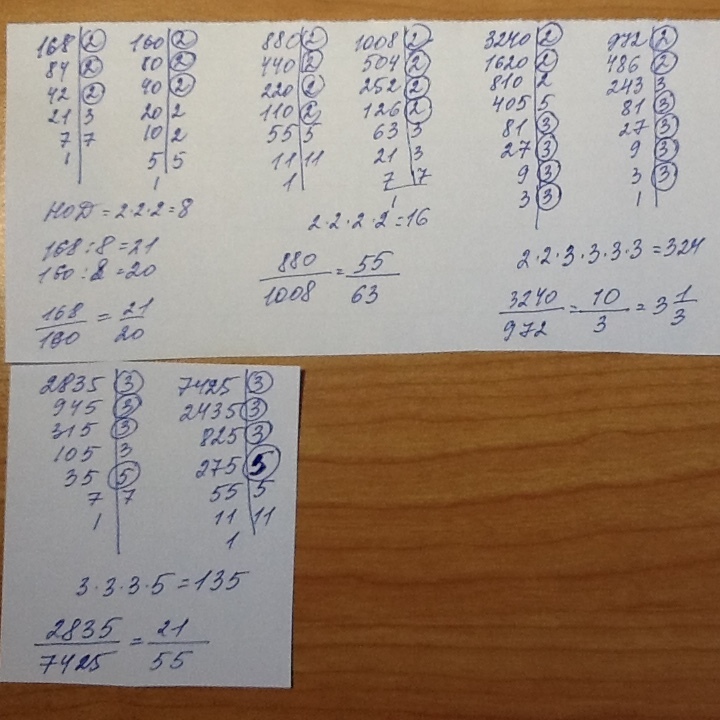 168 | 2
84 | 2
42 | 2
21 | 3
7 | 7
1
160 | 2
80 | 2
40 | 2
20 | 2
10 | 2
5 | 5
1
НОД = 2·2·2 = 8
168 : 8 = 21
160 : 8 = 20
168/160 = 21/20
880 | 2
440 | 2
220 | 2
110 | 2
55 | 5
11 | 11
1
1008 | 2
504 | 2
252 | 2
126 | 2
63 | 3
21 | 3
7 | 7
1
2·2·2·2 = 16
880/1008 = 55/63
3240 | 2
1620 | 2
810 | 2
405 | 5
81 | 3
27 | 3
9 | 3
3 | 3
972 | 2
486 | 2
243 | 3
81 | 3
27 | 3
9 | 3
3 | 3
1
2·2·3·3·3·3 = 324
3240/972 = 10/3 = 3 1/3
2835 | 3
945 | 3
315 | 3
105 | 3
35 | 5
7 | 7
1
7425 | 3
2435 | 3
825 | 3
275 | 5
55 | 5
11 | 11
1
3·3·3·5 = 135
2835/7425 = 21/55